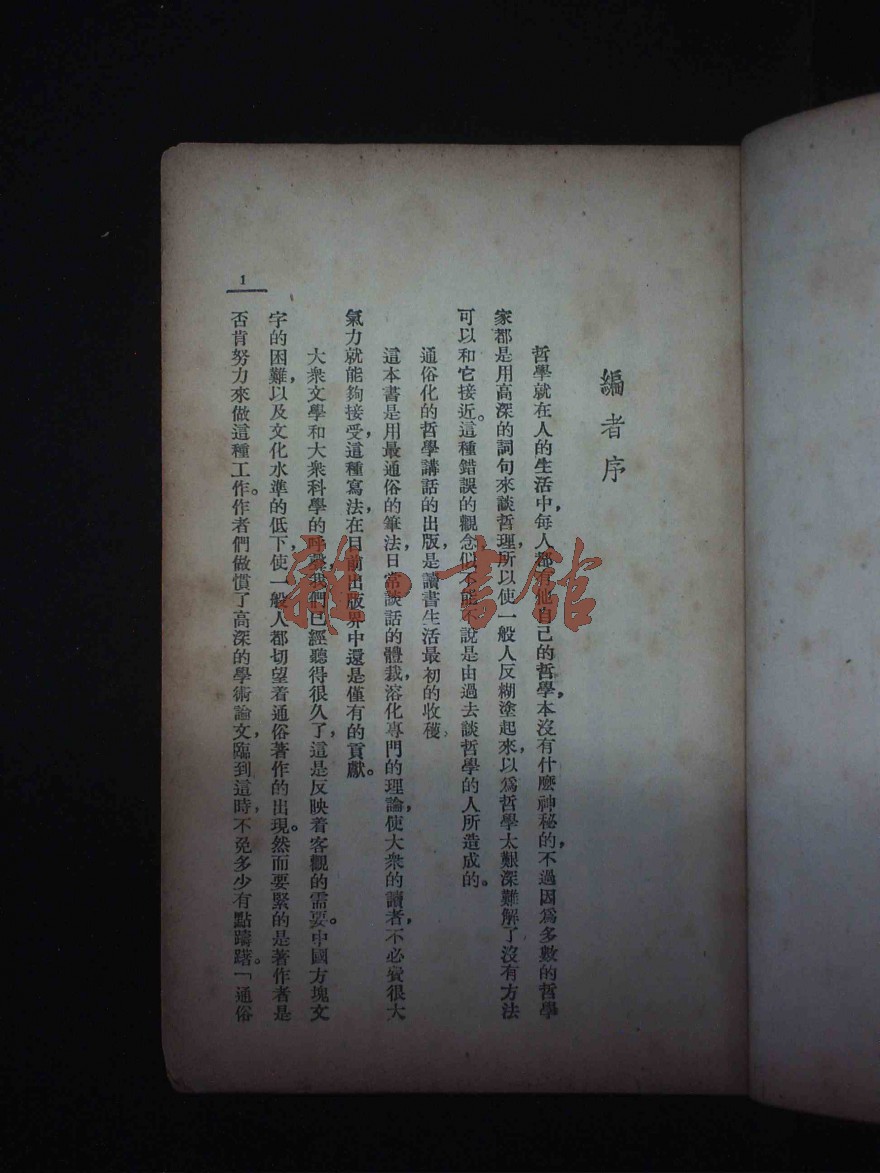 編者序
哲學就在人的生活中，每人都有他自己的哲學，本沒有什麼神秘的，不過因爲多數的哲學
家都是用高深的詞句來談哲理，所以使一般人反糊塗起來，以爲哲學太艱深難解了，沒有方法
可以和它接近。這種錯誤的觀念似不能說是由過去談哲學的人所造成的。
通俗化的哲學講話的出版，是讀書生活最初的收穫。
這本書是用最通俗的筆法，日常談話的體裁，溶化專門的理論，使大衆的讀者，不必費很大
氣力就能夠接受，這種寫法，在目前出版界中還是僅有的貢獻。
大衆文學和大衆科學的呼聲，我們已經聽得很久了，這是反映着客觀的需要。中國方塊文
字的困難，以及文化水準的低下，使一般人都切望着通俗著作的出現。然而要緊的是著作者是
否肯努力來做這種工作。作者們做慣了高深的學術論文，臨到這時，不免多少有點躊躇。「通俗
1
雜·書館